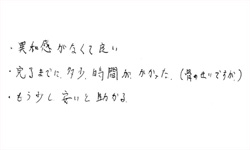 ・異和感がなくて良い
・完了までに多少時間がかかった。(骨のせいですが)
・もう少し安いと助かる